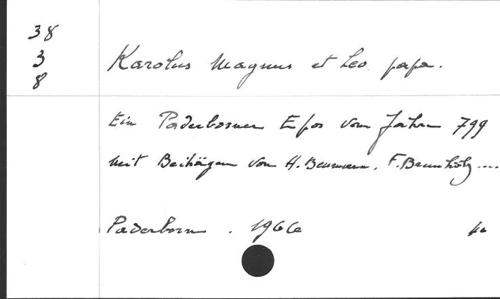 38
3
8
Karolus Magnus et Leo papa.
Ein Paderborner Epos vom Jahre 799
mit Beiträgen von H. Beumann, F. Brunhölzl ....
Paderborn . 1966